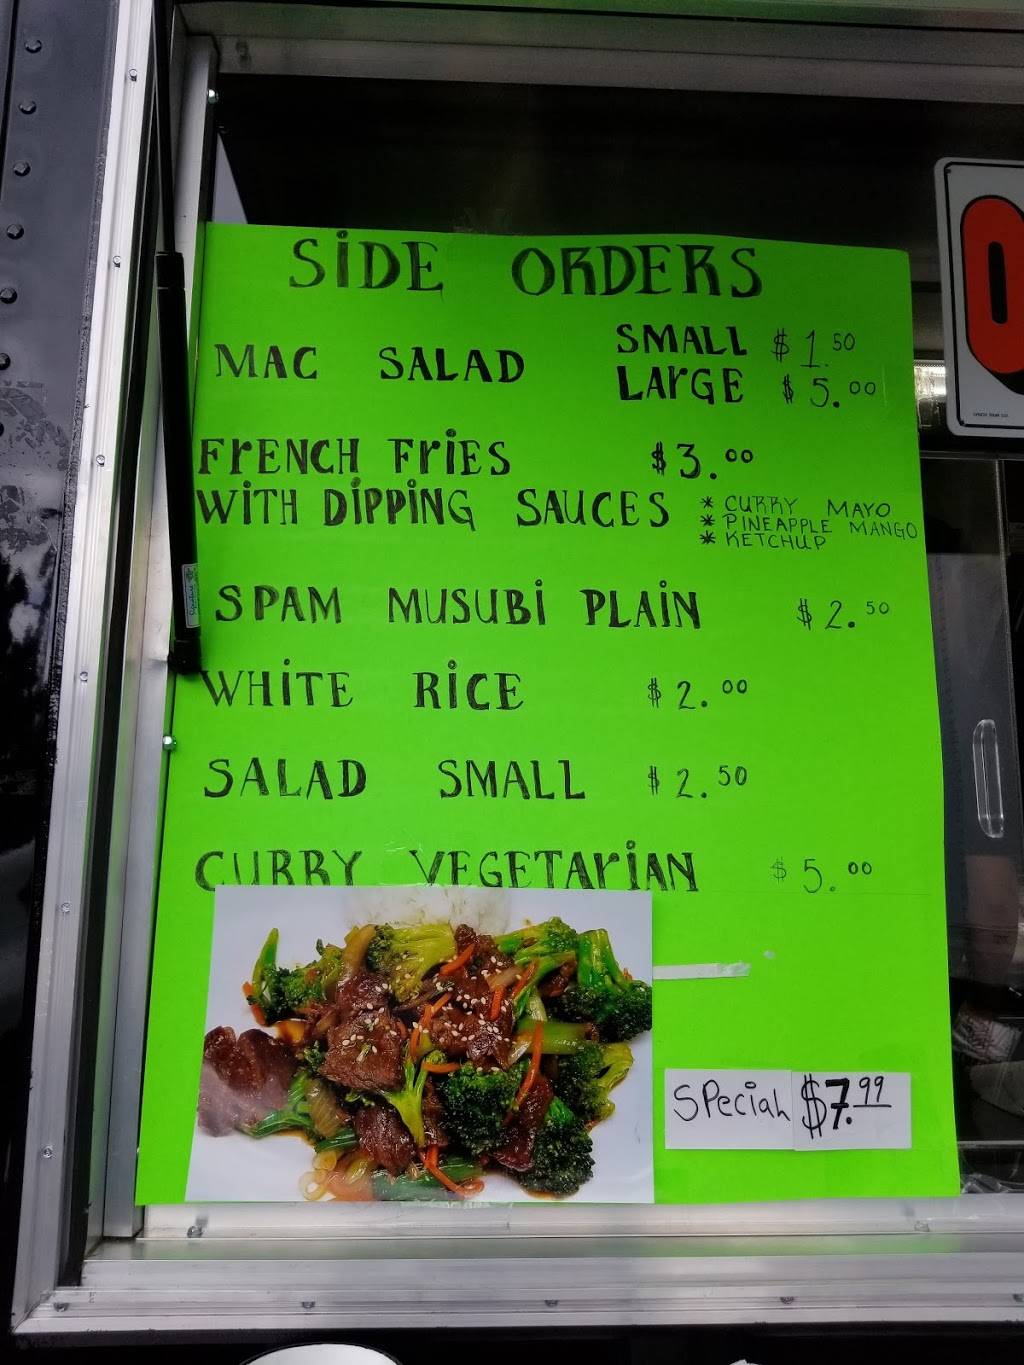 SiDE ORDERS
MAC SALAD
SMALL $ 1.50
LARGE $ 5.00
FRENCH FRiES $3.00
WITH DiPPiNG SAUCES
* CURRY MAYO
* PINEAPPLE MANGO
* KETCHUP
SPAM MUSUBi PLAiN $ 2.50
WHiTE RiCE $ 2.00
SALAD SMALL $ 2.50
CURRY VEGETARiAN $ 5.00
SPeciaL $7.99